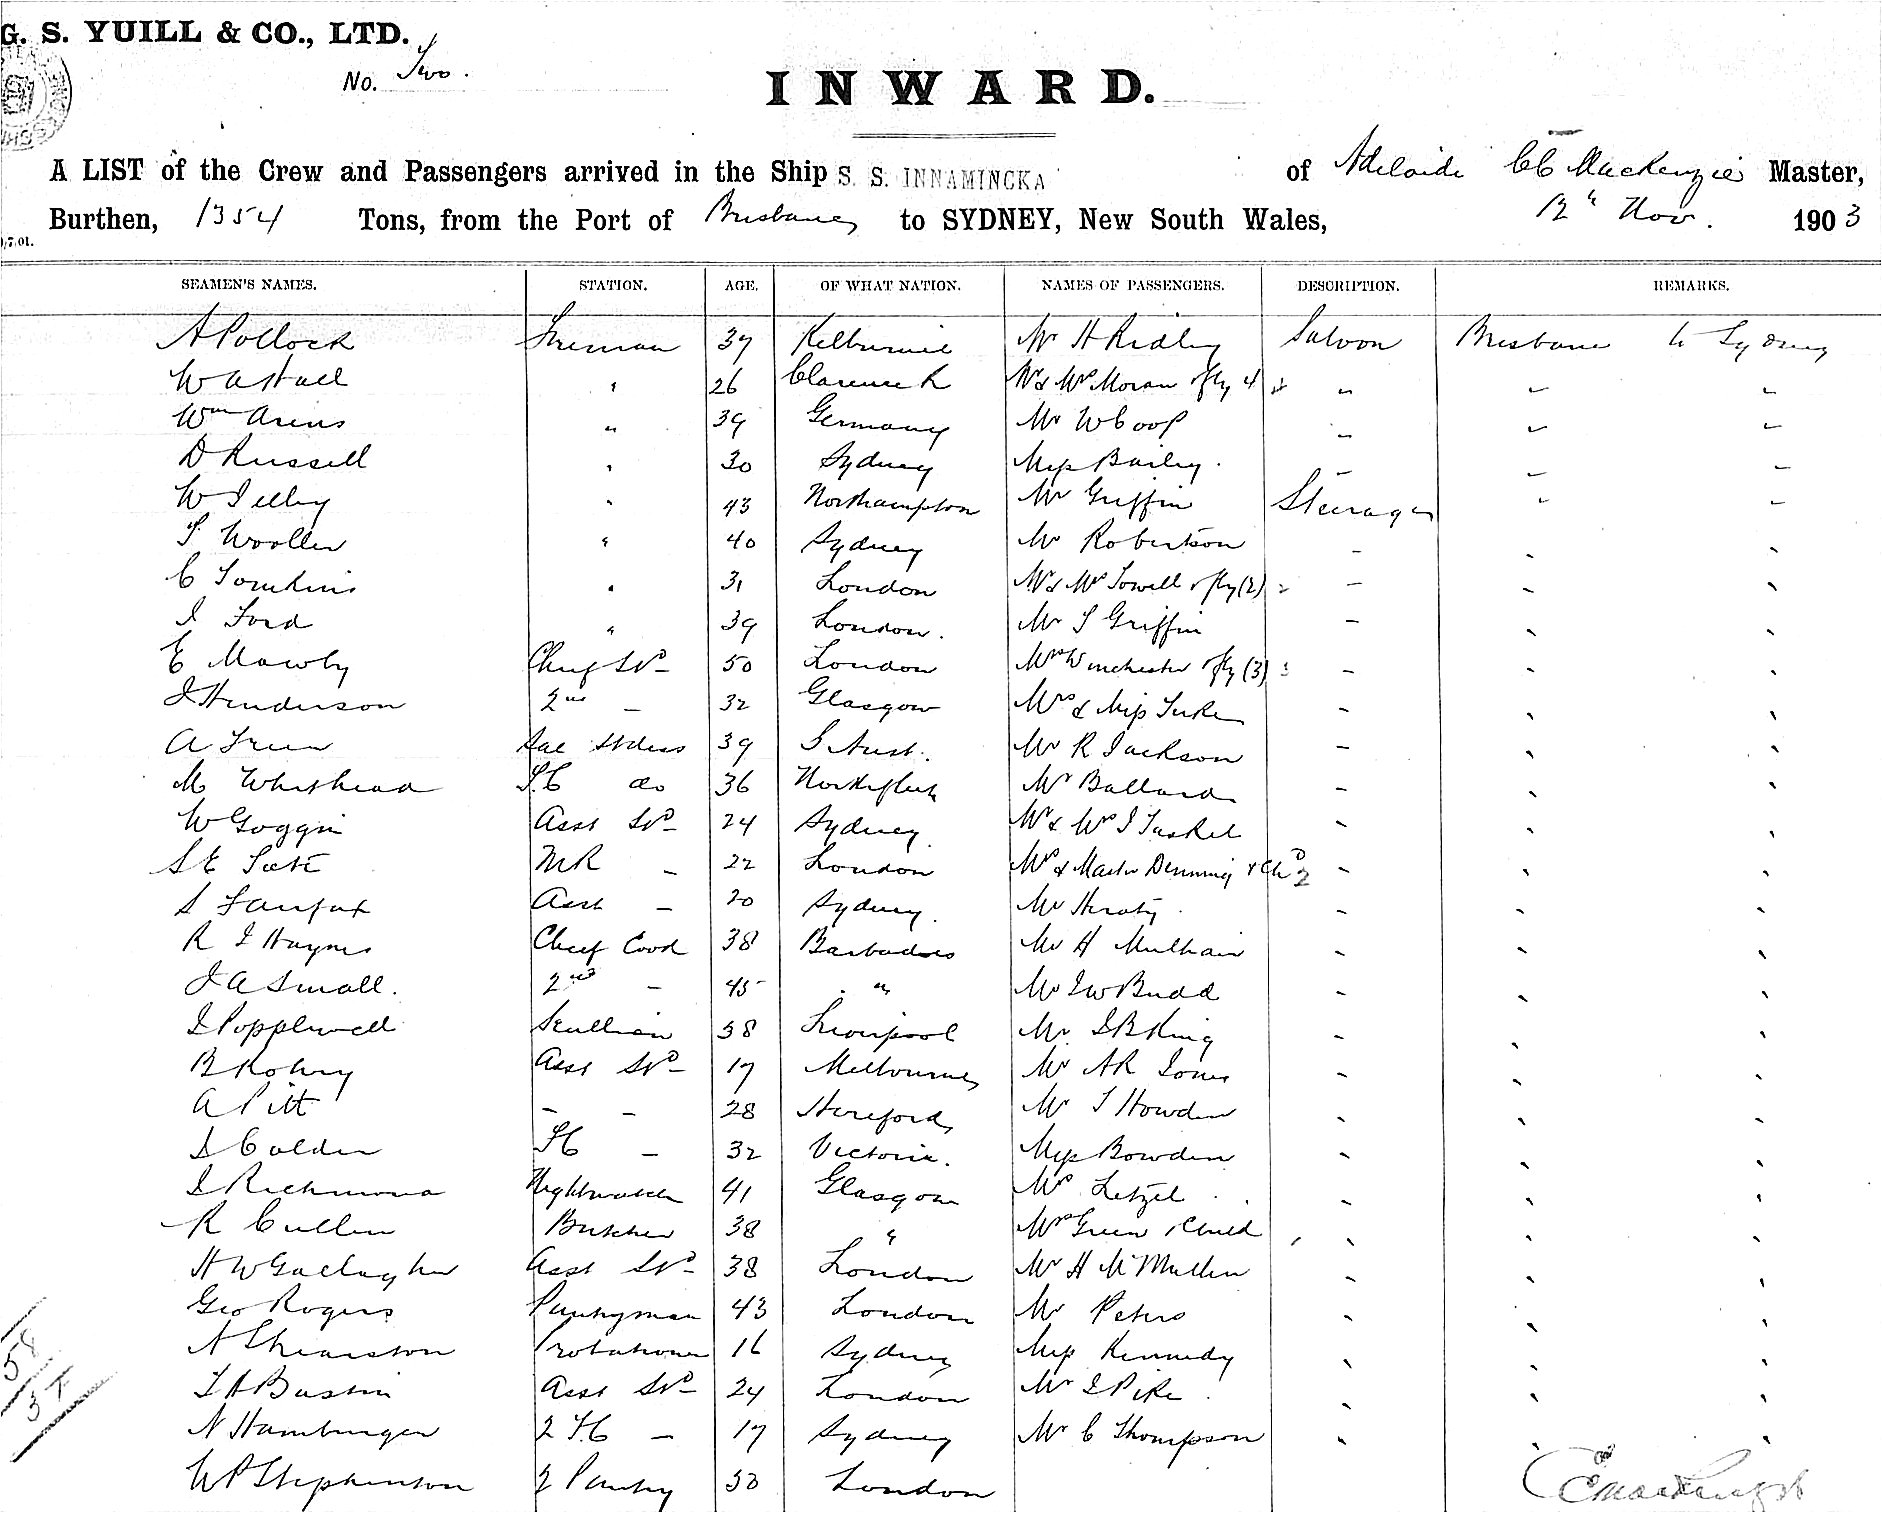 G. S. YUILL & CO., LTD.
No. Two.
INWARD.
A LIST of the Crew and Passengers arrived in the Ship S. S. INNAMINCKA of Adelaide CC MacKenzie Master,
Burthen, 1354 Tons, from the Port of Brisbane to SYDNEY, New South Wales, 12th Nov. 1903
/7.01.
SEAMEN'S NAMES. STATION. AGE. OF WHAT NATION. NAMES OF PASSENGERS. DESCRIPTION. REMARKS.
A Pollock Fireman 37 Kilburnie Mr H Ridley Saloon Brisbane to Sydney
W A Hall " 26 Clarence R Mr & Mrs Moran & fly 4 " " "
Wm Arens " 39 Germany Mr W Coop " " "
D Russell " 30 Sydney Miss Bailey. " " "
W " 43 Northampton Mr Griffin Steerage " "
T Woller " 40 Sydney Mr Robertson " " "
C Tomkins " 31 London Mr & Mrs Towell & fly (2) " " "
J Ford " 39 London. Mr T Griffin " " "
E Mawby Chief Std 50 London Mrs Winchester & fly (3) " " "
J Henderson 2nd " 32 Glasgow Mrs & Miss " " "
A Green Sal Stdess 39 S Aust. Mr R Jackson " " "
M Whithead S.C do 36 Northfleet Mr Ballard " " "
W Goggin Asst Std 24 Sydney Mr & Mrs J " " "
S E MR " 22 London Mrs & Master Denning & Chd 2 " " "
S Fairfax Asst " 20 Sydney. Mr Heraty. " " "
R J Haynes Chief Cook 38 Barbadoes Mr H " " "
J A Small. 2nd " 45 " Mr J W Budd " " "
J Popplewell Scullion 38 Liverpool Mr J B King " " "
B Asst Std 17 Melbourne Mr A R Jones " " "
A Pitt " " 28 Hereford Mr T Howden " " "
J Calder SC " 32 Victoria. Miss Bowden " " "
J Richmond Nightwatch 41 Glasgow Mrs Letzel " " "
R Cullen Butcher 38 " Mrs Green & Child " " "
H W Gallagher Asst Std 38 London Mr H McMullen " " "
Geo Rogers Pantryman 43 London Mr Peters " " "
A Shearston Probationer 16 Sydney Miss Kennedy " " "
T A Bustin Asst Std 24 London Mr J Pike. " " "
N Hamburger 2 SC " 17 Sydney Mr C Thompson " " "
W P Stephenson 2 Pantry 30 London
58
37